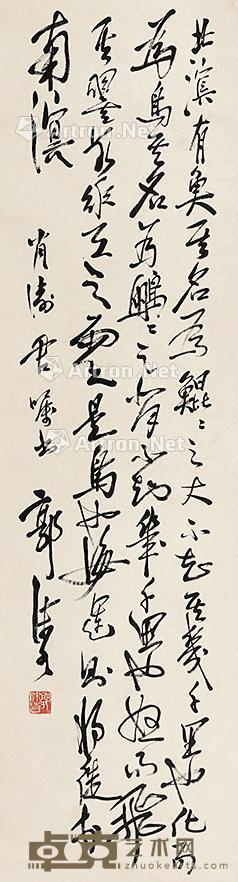 北溟有魚其名為鯤〻之大不知其幾千里也化而
為鳥其名為鵬〻之背不知幾千里也怒而飛
其翼若垂天之雲是鳥也海運則將徙於
南溟
肖濤君囑書 郭沫若
Artron.Net
卓克艺术网